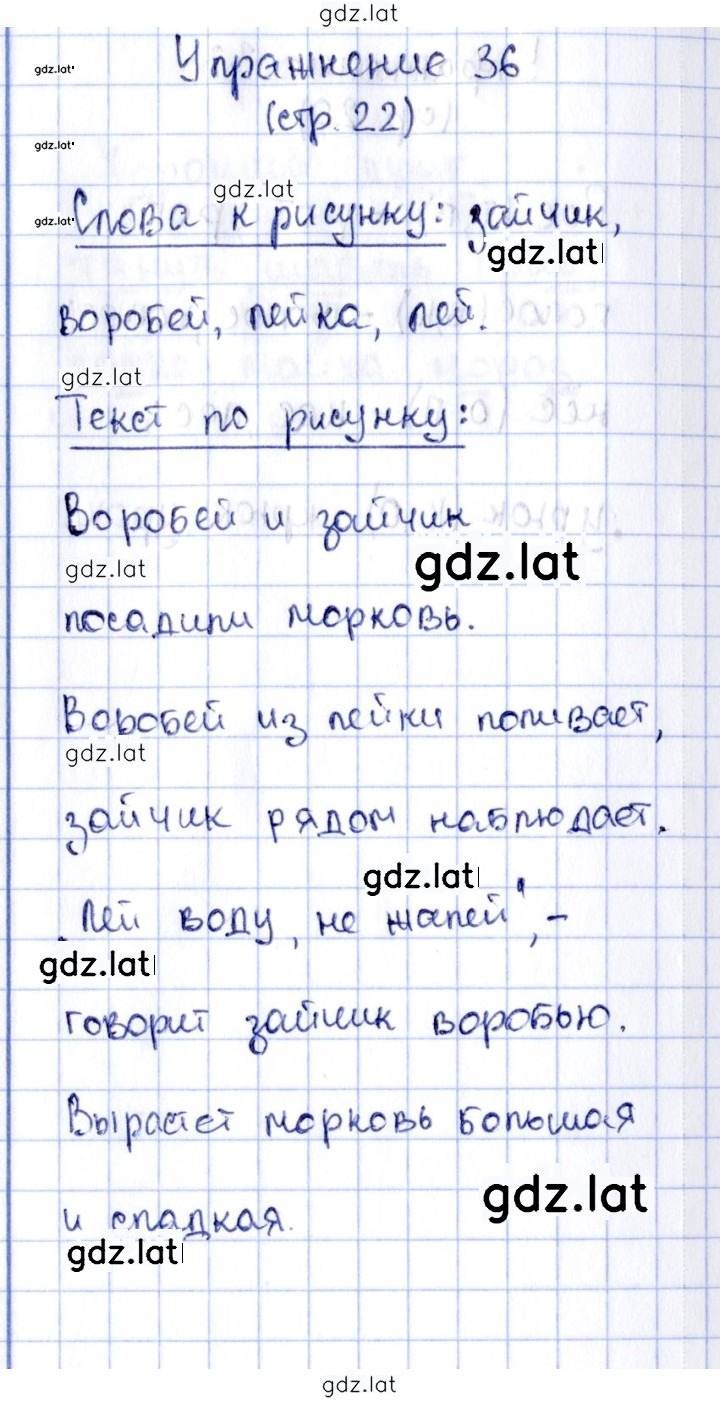 gdz.lat
gdz.lat
Упражнение 36
(стр. 22)
gdz.lat
gdz.lat
gdz.lat
Слова к рисунку: зайчик,
gdz.lat
воробей, лейка, лей.
gdz.lat
Текст по рисунку:
Воробей и зайчик
gdz.lat
gdz.lat
посадили морковь.
Воробей из лейки поливает,
gdz.lat
зайчик рядом наблюдает.
gdz.lat
„Лей воду, не жалей", –
gdz.lat
говорит зайчик воробью.
Вырастет морковь большая
gdz.lat
и сладкая.
gdz.lat
gdz.lat